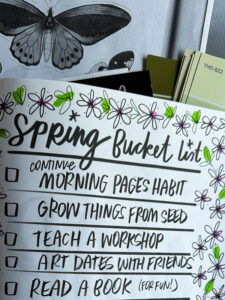 THD-B02
Spring Bucket list
continue
MORNING PAGES HABIT
GROW THINGS FROM SEED
TEACH A WORKSHOP
ART DATES WITH FRIENDS
READ A BOOK (FOR FUN!)